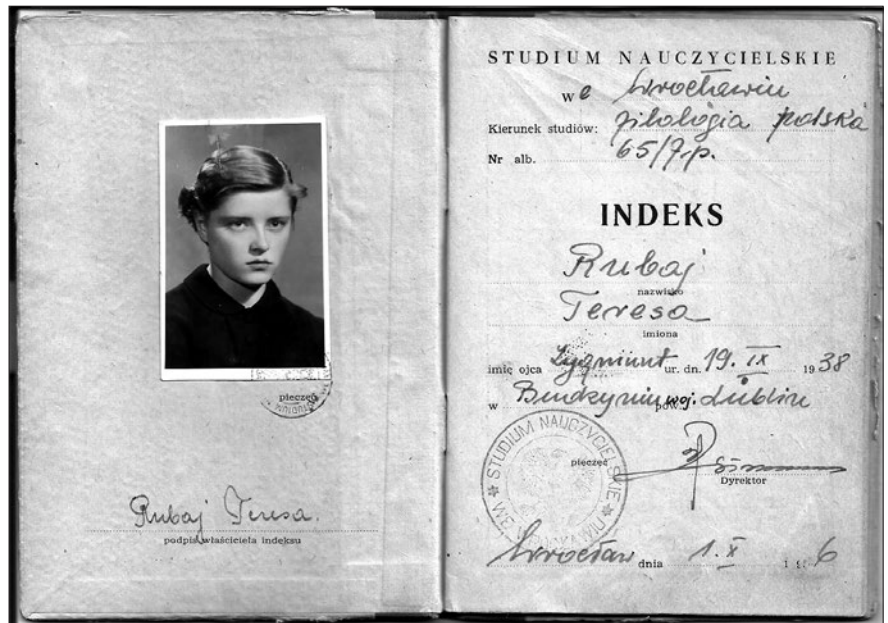 pieczęć
STUDIUM
Rubaj Teresa.
podpis właściciela indeksu
STUDIUM NAUCZYCIELSKIE
we Wrocławiu
Kierunek studiów: filologia polska
Nr alb. 65/7.p.
INDEKS
Rubaj
nazwisko
Teresa
imiona
imię ojca Zygmunt ur. dn. 19. IX 1938
w Budzyniu woj. Lublin
pieczęć
STUDIUM NAUCZYCIELSKIE
Dyrektor
Wrocław dnia 1. X 19 6